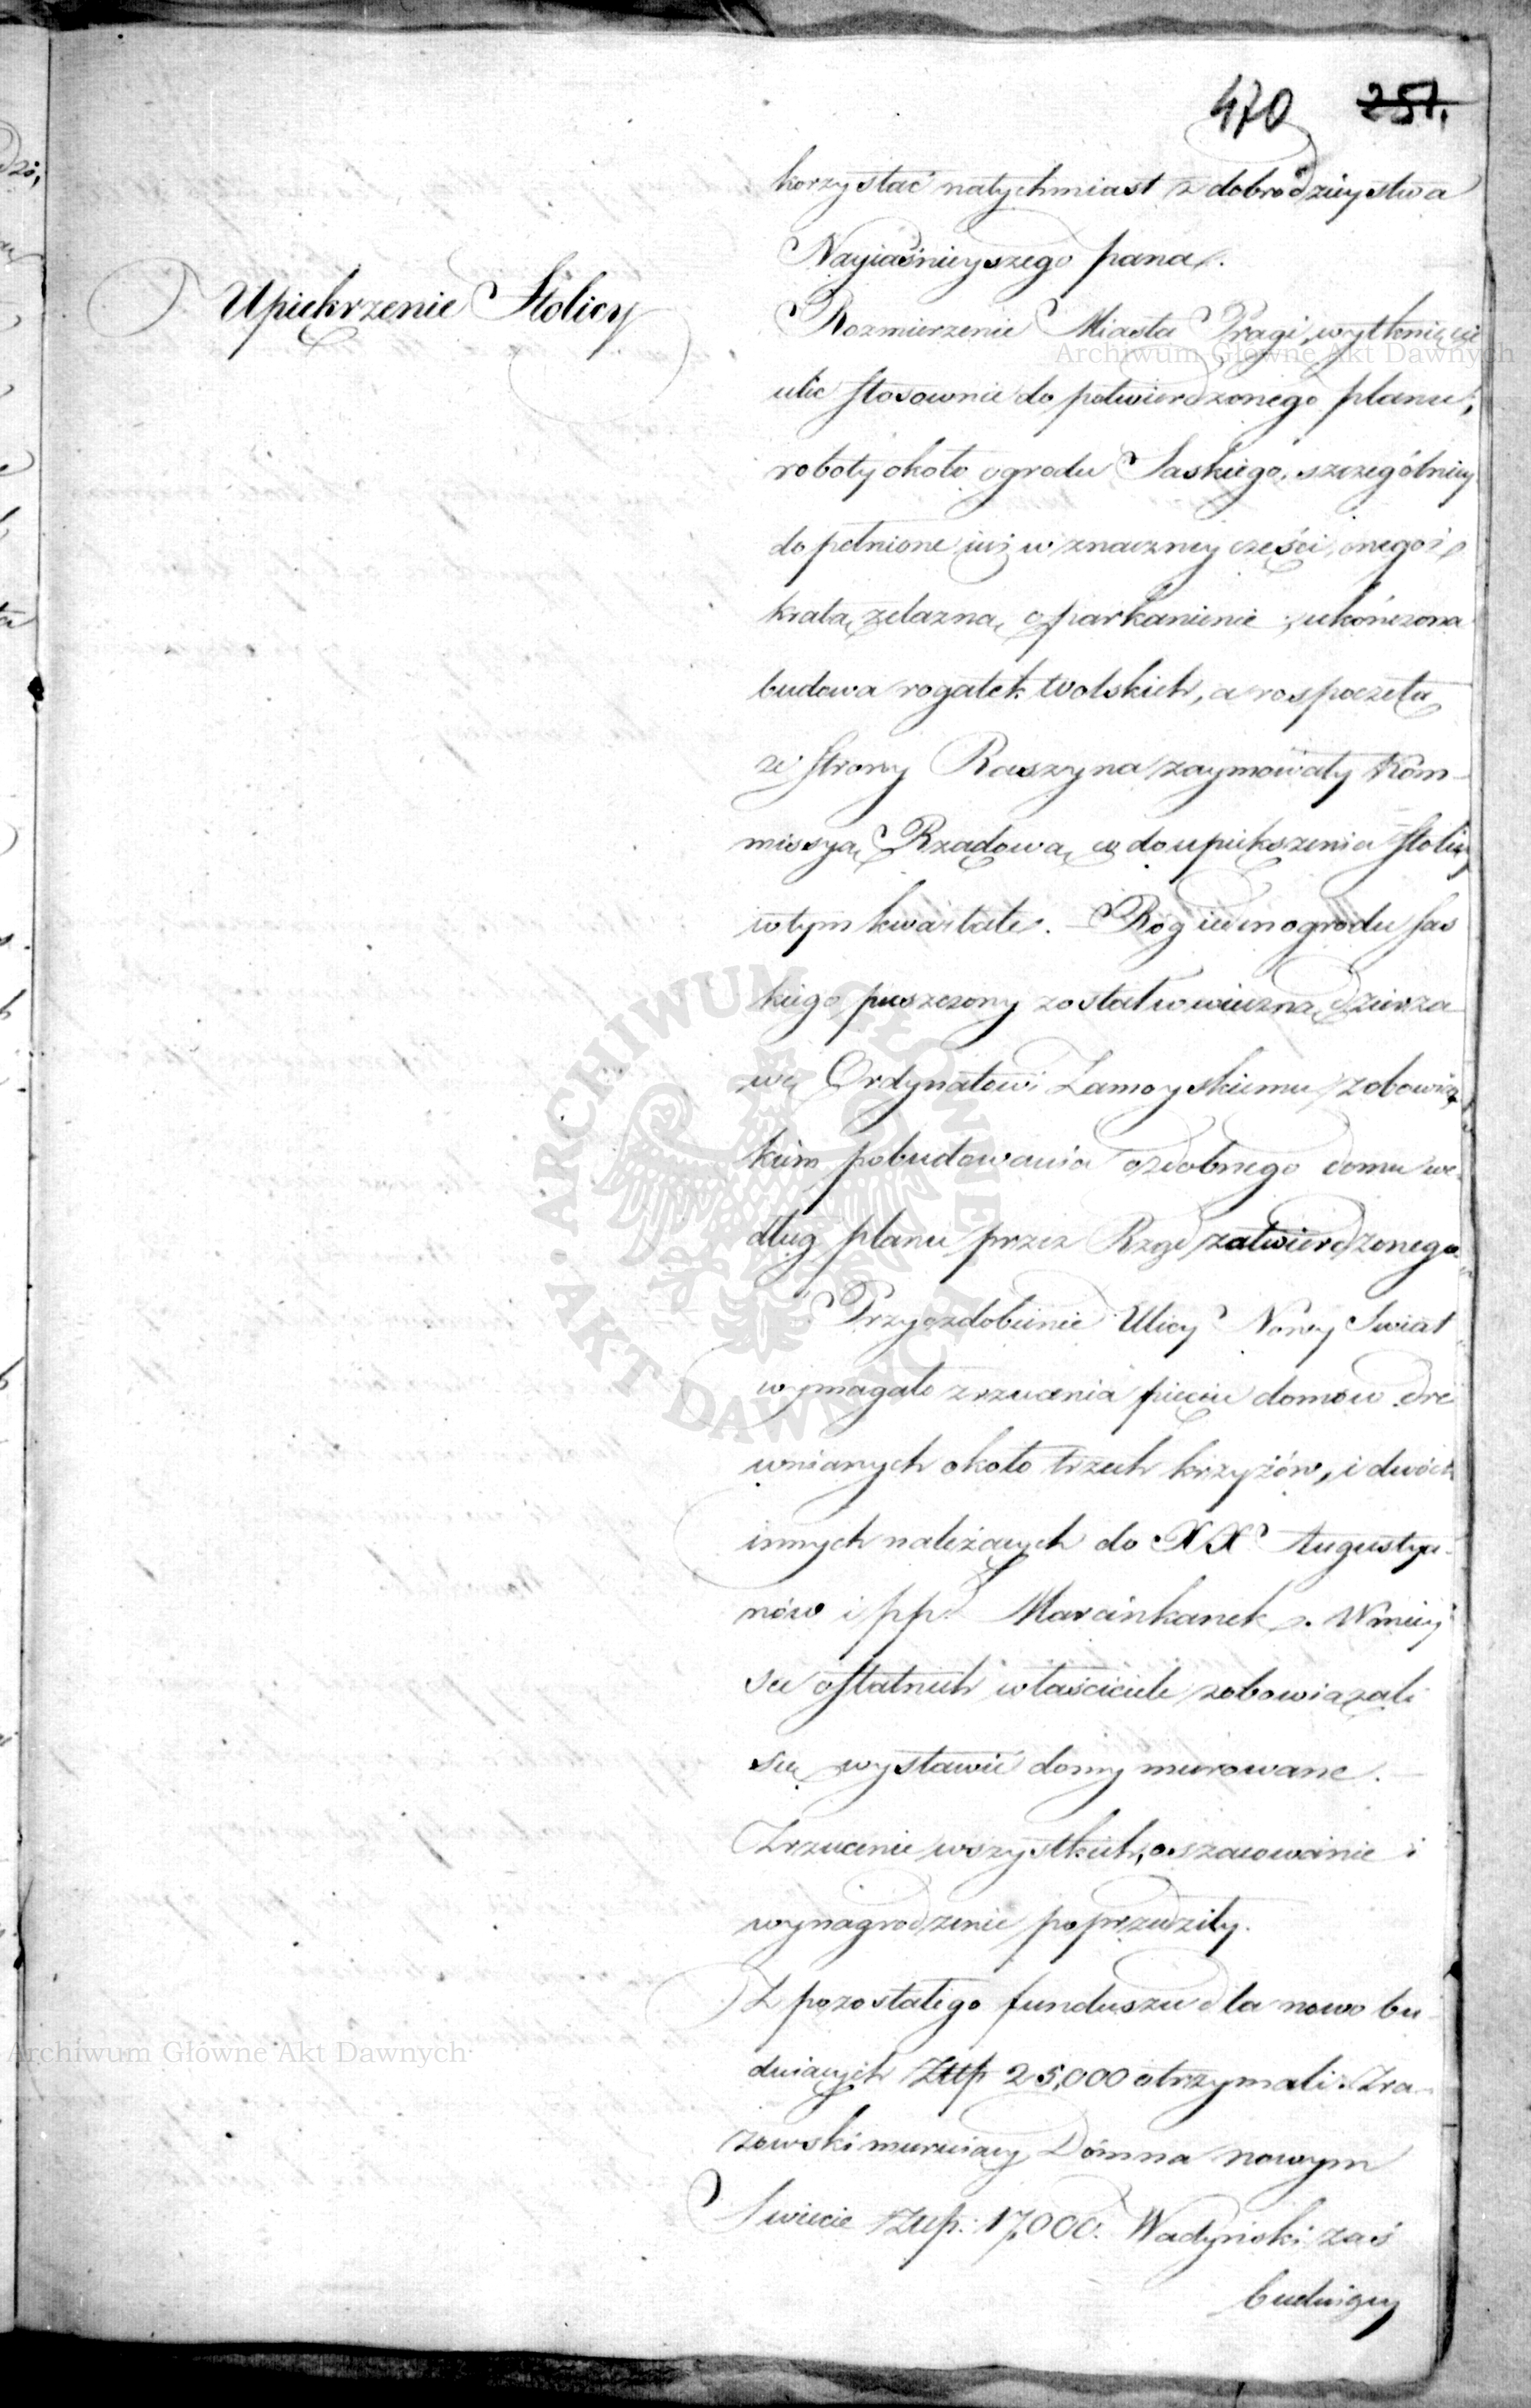 470 257.
korzystać natychmiast z dobrodzieystwa
Nayiaśnieyszego pana.
Upiekrzenie Stolicy
Rozmierzenie Miasta Pragi, wytknięcie
ulic stosownie do potwierdzonego planu;
roboty około ogrodu Saskiego, szczególniey
dopełnione iuż w znaczney części onegoż
kratą żelazną oparkanienie; ukończona
budowa rogatek Wolskich, a rospoczęta
ze strony Raszyna zaymowały Kom-
missyą Rządową co do upiększenia Stolicy
w tym kwartale. – Róg ieden ogrodu Sas
kiego puszczony został w wieczną dzierża
wę Ordynatowi Zamoyskiemu z obowiąz
kiem pobudowania ozdobnego domu we-
dług planu przez Rząd zatwierdzonego.
Przyozdobienie Ulicy Nowy Swiat
wymagało zrzucenia pięciu domów dre
wnianych około trzech krzyżów, i dwóch
innych należących do XX. Augustya-
nów i pp. Marcinkanek. W miey
sce ostatnich właściciele zobowiązali
się wystawić domy murowane. –
Zrzucenie wszystkich, oszacowanie i
wynagrodzenie poprzedziły.
Z pozostałego funduszu dla nowo bu-
duiących Złłp 25,000 otrzymali. Zra-
zowski muruiący Dom na nowym
Swiecie Złłp: 17,000. Wadyński zaś
buduiący
Archiwum Główne Akt Dawnych
ARCHIWUM GŁÓWNE AKT DAWNYCH
Archiwum Główne Akt Dawnych